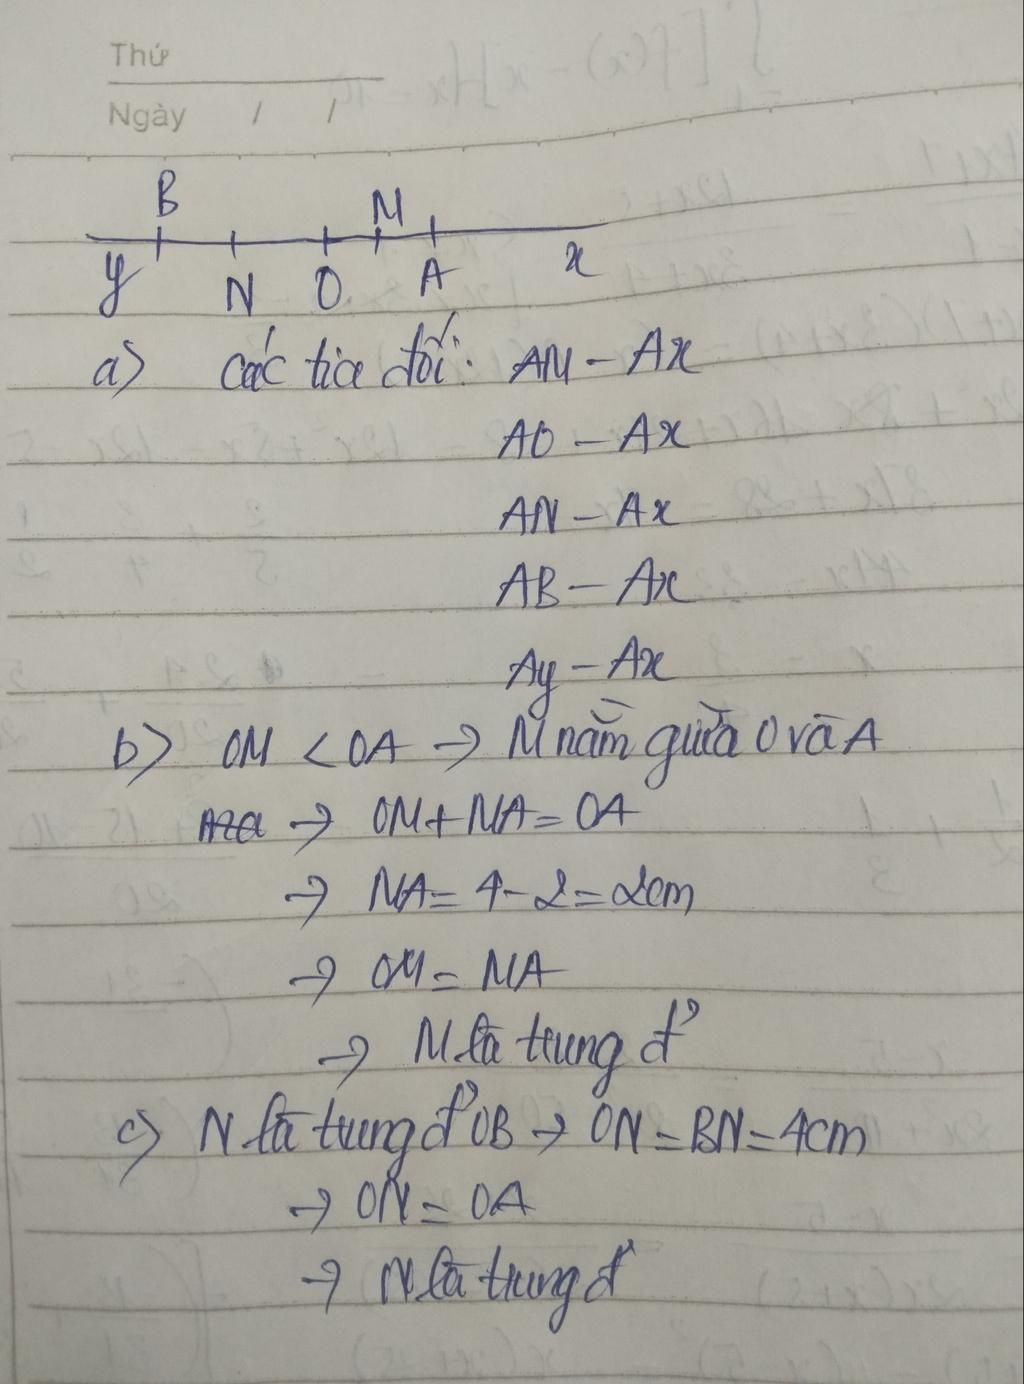 Thứ
Ngày / /
B M
y N O A x
a) các tia đối: AM - Ax
AO - Ax
AN - Ax
AB - Ax
Ay - Ax
b) OM < OA → M nằm giữa O và A
→ OM + MA = OA
→ MA = 4 - 2 = 2cm
→ OM = MA
→ M là trung đ'
c) N là trung đ' OB → ON = BN = 4cm
→ ON = OA
→ N là trung đ'